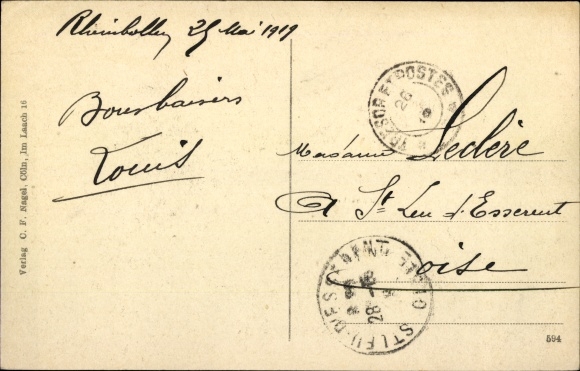 25 Mai 1919
Bons baisers
Louis
Madame Leclère
A St Leu d'Esserent
Oise
TRESOR ET POSTES
26
ST LEU-D'ESSERENT
28
OISE
Verlag C. F. Nagel, Cöln, Im Laach 16
594